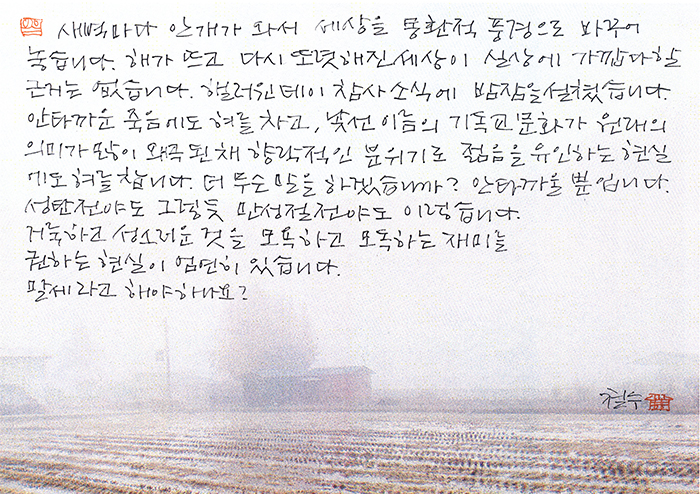 새벽마다 안개가 와서 세상을 몽환적 풍경으로 바꾸어
놓습니다. 해가 뜨고 다시 또렷해진세상이 실상에 가깝다할
근거는 없습니다. 핼러윈데이 참사소식에 밤잠을설쳤습니다.
안타까운 죽음에도 혀를 차고, 낯선 이름의 기독교문화가 원래의
의미가 많이 왜곡된채 향락적인 분위기로 젊음을유인하는현실
에도혀를찹니다. 더 무슨 말을 하겠습니까? 안타까울 뿐입니다.
성탄전야도 그렇듯 만성절전야도 이렇습니다.
거룩하고 성스러운 것을 모욕하고 모독하는 재미를
권하는 현실이 엄연히 있습니다.
말세라고 해야하나요?
철수